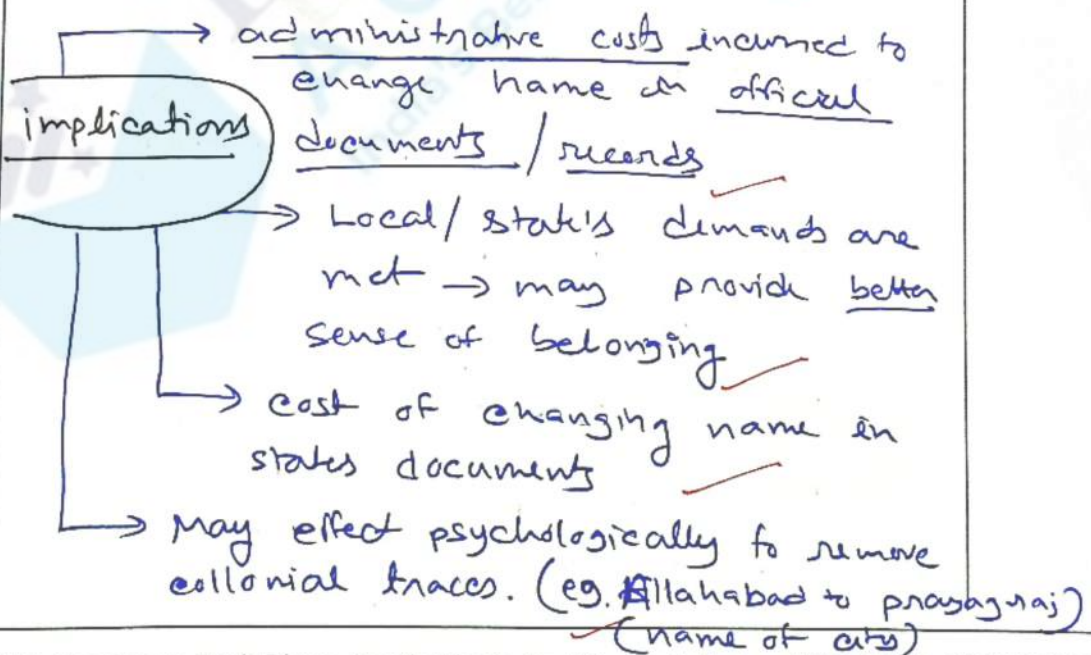 → administrative costs incurred to
change name in official
implications
documents / records
→ Local / state's demands are
met → may provide better
sense of belonging
→ cost of changing name in
states documents
→ May effect psychologically to remove
collonial traces. (eg. Allahabad to prayagraj)
(name of city)